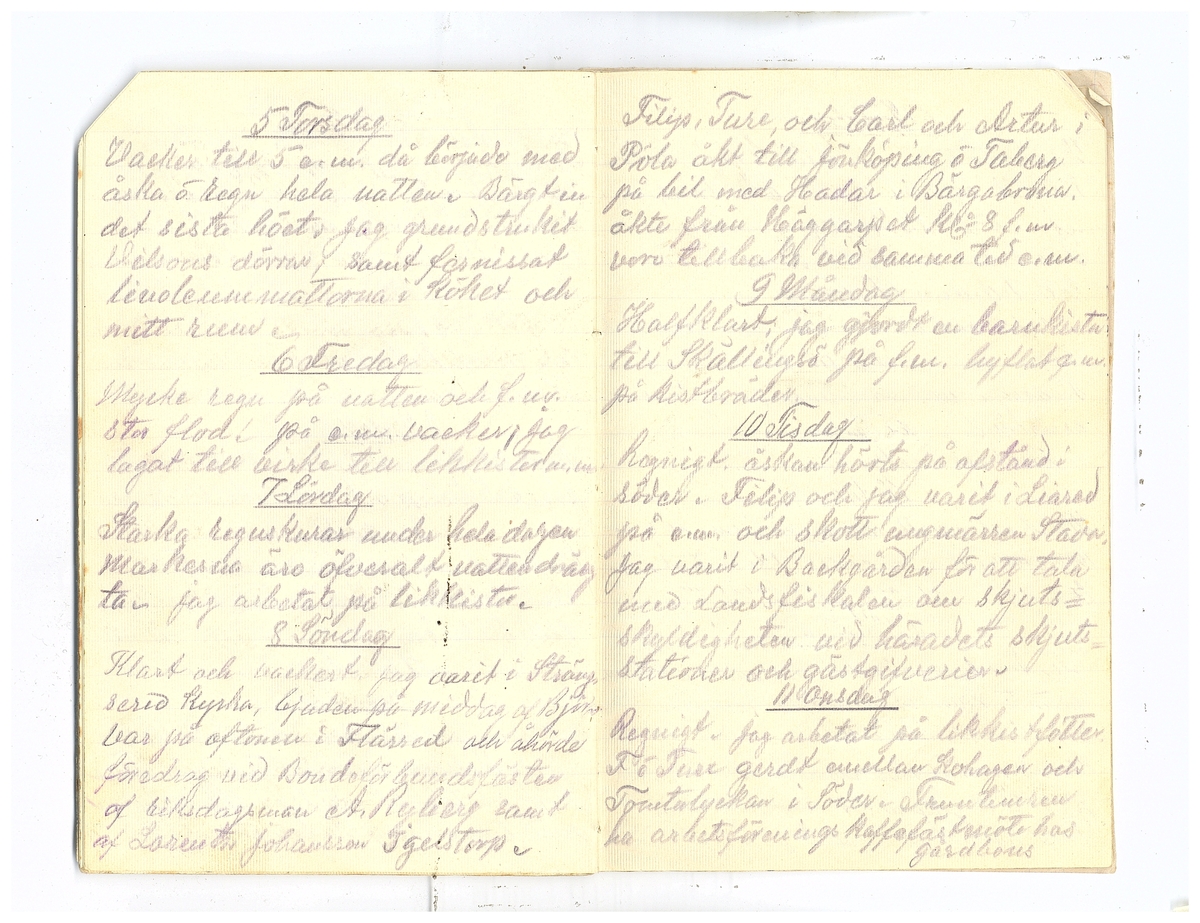 5 Torsdag
Vacker till 5 e.m. då började med
åska ö regn hela natten. Bärgt in
det sista höet, jag grundstrukit
Nilsons dörrar, samt fernissat
linoleummattorna i köket och
mitt rum.
6 Fredag
Mycke regn på natten och f.m.
stor flod. på e.m. vacker, jag
lagat till virke till likkistor m.m.
7 Lördag
Starka regnskurar under hela dagen
markerna äro öfveralt vattendräng
ta. jag arbetat på likkistor.
8 Söndag
Klart och vackert jag varit i Sträng
sered kyrka, bjuden på middag af
Var på aftonen i Flärred och åhörde
föredrag vid Bondeförbundsfästen
af riksdagsman A. Nyberg samt
af Lorentz Johansson Tgelstorp.
Filip, Ture, och Carl och Artur i
Pöla åkt till Jönköping ö Taberg
på bil med Hadar i Bärgabrona.
åkte från Häggarpet kl 8 f.m.
voro tillbaka vid samma tid e.m.
9 Måndag
Halfklart, jag gjordt en barnkista
till Skällingsö på f.m. hyflat e.m.
på kistbräder.
10 Tisdag
Regnigt. åskan hörts på afstånd i
söder. Filip och jag varit i Liared
på e.m. och skott ungmärren Stadn,
jag varit i Backgården för att tala
med Landsfiskalen om skjuts=
skyldigheten vid häradets skjuts=
stationer och gästgifverier.
11 Onsdag
Regnigt. jag arbetat på likkistfötter
F ö Ture gerdt emellan kohagen och
Tomtalyckan i Söder. Fruntimren
ha arbetsförenings kaffefäst möte hos
Gärdhons